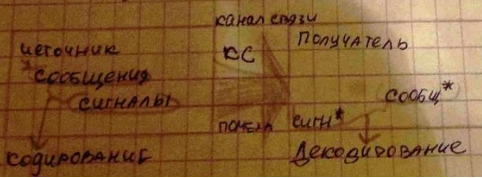 канал связи
источник
КС
получатель
сообщения
сигналы
сообщ*
сигн*
кодирование
Декодирование